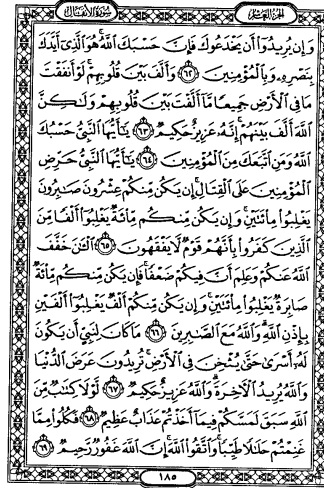 سورة الأنفال
الجزء العاشر
وَإِن يُرِيدُوٓا۟ أَن يَخْدَعُوكَ فَإِنَّ حَسْبَكَ ٱللَّهُ هُوَ ٱلَّذِىٓ أَيَّدَكَ
بِنَصْرِهِۦ وَبِٱلْمُؤْمِنِينَ ٦٢ وَأَلَّفَ بَيْنَ قُلُوبِهِمْ لَوْ أَنفَقْتَ
مَا فِى ٱلْأَرْضِ جَمِيعًا مَّآ أَلَّفْتَ بَيْنَ قُلُوبِهِمْ وَلَٰكِنَّ
ٱللَّهَ أَلَّفَ بَيْنَهُمْ إِنَّهُۥ عَزِيزٌ حَكِيمٌ ٦٣ يَٰٓأَيُّهَا ٱلنَّبِىُّ حَسْبُكَ
ٱللَّهُ وَمَنِ ٱتَّبَعَكَ مِنَ ٱلْمُؤْمِنِينَ ٦٤ يَٰٓأَيُّهَا ٱلنَّبِىُّ حَرِّضِ
ٱلْمُؤْمِنِينَ عَلَى ٱلْقِتَالِ إِن يَكُن مِّنكُمْ عِشْرُونَ صَٰبِرُونَ
يَغْلِبُوا۟ مِا۟ئَتَيْنِ وَإِن يَكُن مِّنكُم مِّا۟ئَةٌ يَغْلِبُوٓا۟ أَلْفًا مِّنَ
ٱلَّذِينَ كَفَرُوا۟ بِأَنَّهُمْ قَوْمٌ لَّا يَفْقَهُونَ ٦٥ ٱلْـَٰٔنَ خَفَّفَ
ٱللَّهُ عَنكُمْ وَعَلِمَ أَنَّ فِيكُمْ ضَعْفًا فَإِن يَكُن مِّنكُم مِّا۟ئَةٌ
صَابِرَةٌ يَغْلِبُوا۟ مِا۟ئَتَيْنِ وَإِن يَكُن مِّنكُمْ أَلْفٌ يَغْلِبُوٓا۟ أَلْفَيْنِ
بِإِذْنِ ٱللَّهِ وَٱللَّهُ مَعَ ٱلصَّٰبِرِينَ ٦٦ مَا كَانَ لِنَبِىٍّ أَن يَكُونَ
لَهُۥٓ أَسْرَىٰ حَتَّىٰ يُثْخِنَ فِى ٱلْأَرْضِ تُرِيدُونَ عَرَضَ ٱلدُّنْيَا
وَٱللَّهُ يُرِيدُ ٱلْـَٔاخِرَةَ وَٱللَّهُ عَزِيزٌ حَكِيمٌ ٦٧ لَّوْلَا كِتَٰبٌ مِّنَ
ٱللَّهِ سَبَقَ لَمَسَّكُمْ فِيمَآ أَخَذْتُمْ عَذَابٌ عَظِيمٌ ٦٨ فَكُلُوا۟ مِمَّا
غَنِمْتُمْ حَلَٰلًا طَيِّبًا وَٱتَّقُوا۟ ٱللَّهَ إِنَّ ٱللَّهَ غَفُورٌ رَّحِيمٌ ٦٩
١٨٥